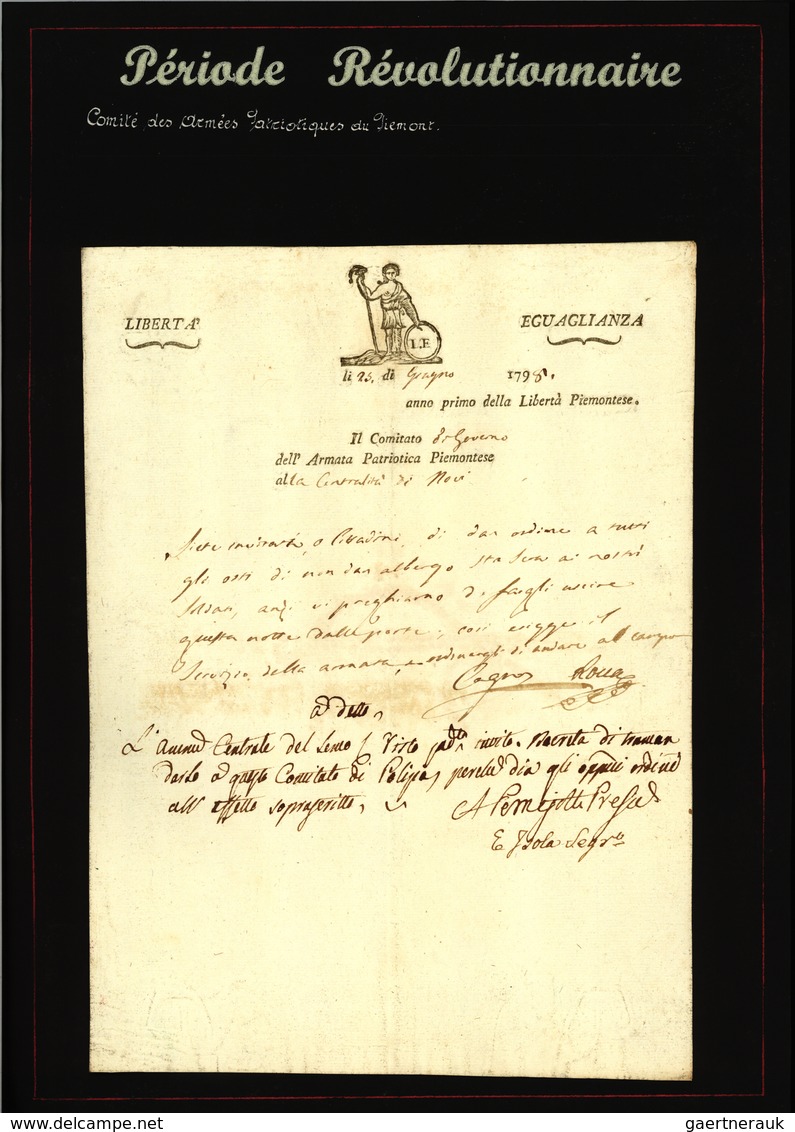 Période Révolutionnaire
Comité des Armées Patriotiques du Piemont.
LIBERTA'
EGUAGLIANZA
L.E
li 25. di Giugno 1798.
anno primo della Libertà Piemontese.
Il Comitato di Governo
dell' Armata Patriotica Piemontese
alla Centralità di Novi
Siete invitati, o Cittadini, di dar ordine a tutti
gli osti di non dar albergo sta sera ai nostri
anzi vi preghiamo di fargli uscire
questa notte dalle porte, così esigge il
servizio della armata, e ordinargli di andare al campo
Rocca
ad detto
L' Centrale del Lemo Visto invito. Decreta di traman
darlo a questo Comitato di Polizia, perché dia gli ordini
all' effetto soprascritto.
E Isola Segr.o
gaertnerauk